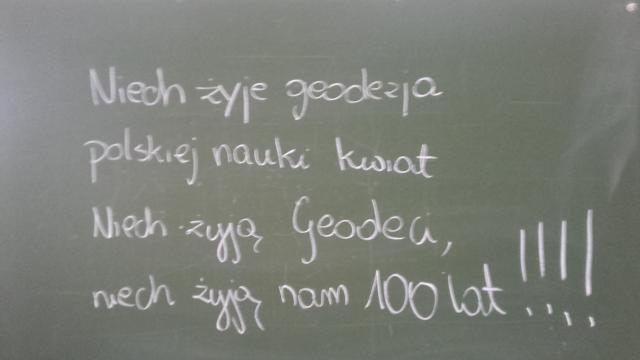 Niech żyje geodezja
polskiej nauki kwiat
Niech żyją Geodeci,
niech żyją nam 100 lat !!!!